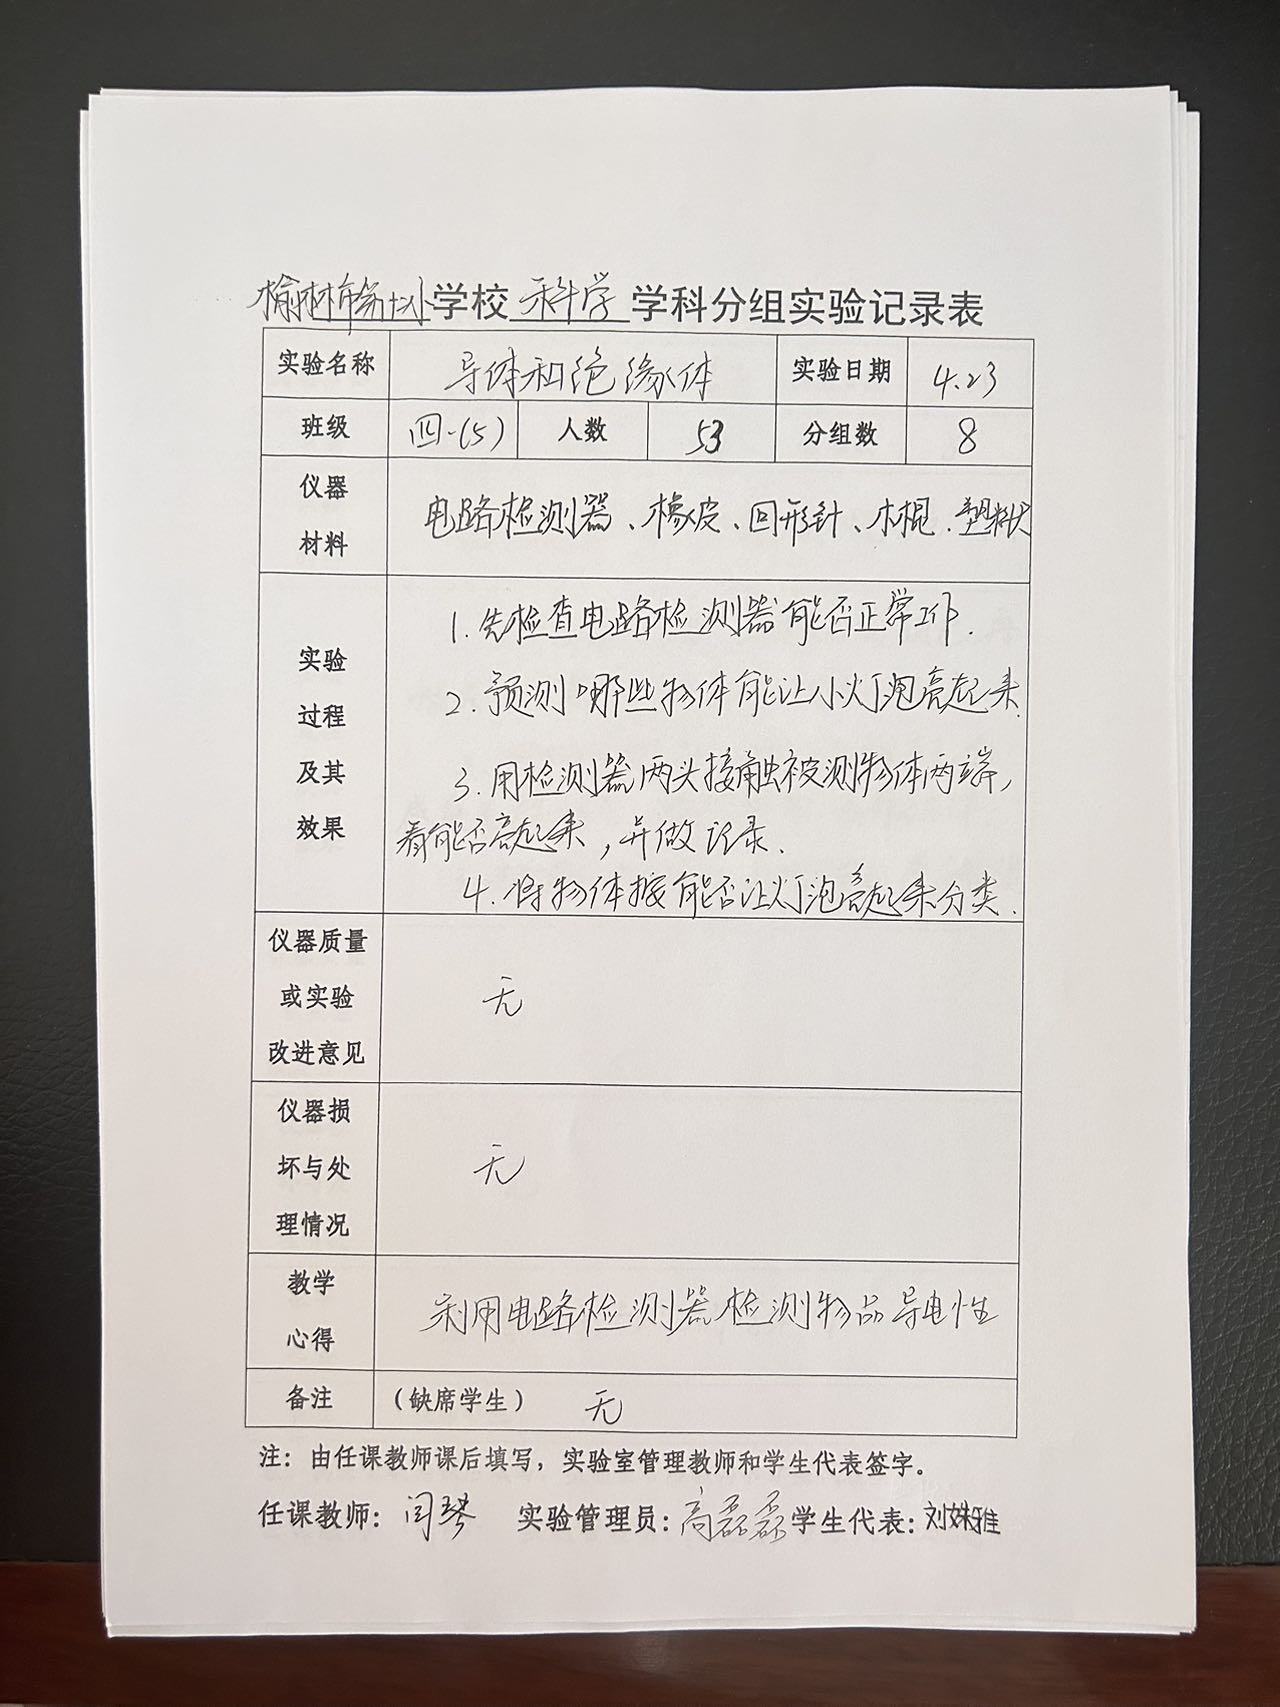 榆林市第十六小学校 科学 学科分组实验记录表
实验名称 导体和绝缘体 实验日期 4.23
班级 四.(5) 人数 53 分组数 8
仪器
材料
电路检测器、橡皮、回形针、木棍、塑料尺
实验
过程
及其
效果
1.先检查电路检测器能否正常工作.
2.预测哪些物体能让小灯泡亮起来.
3.用检测器两头接触被测物体两端,
看能否亮起来,并做记录.
4.将物体按能否让灯泡亮起来分类.
仪器质量
或实验
改进意见
无
仪器损
坏与处
理情况
无
教学
心得
利用电路检测器检测物品导电性
备注 (缺席学生) 无
注：由任课教师课后填写，实验室管理教师和学生代表签字。
任课教师：闫琴 实验管理员：高磊磊 学生代表：刘姝雅